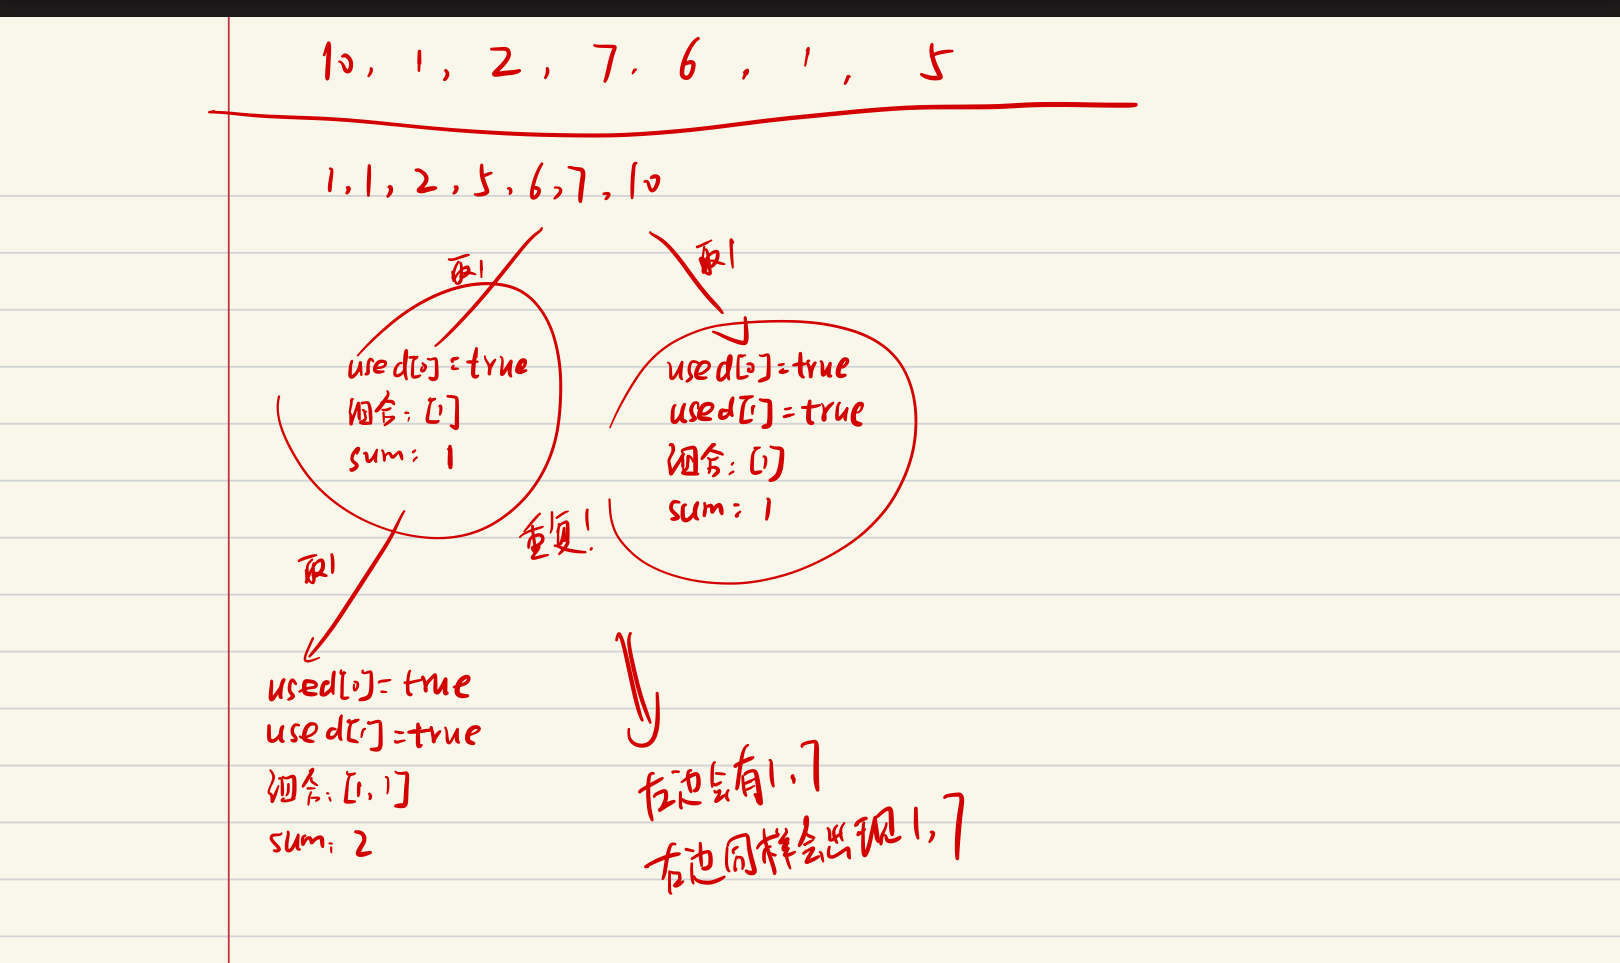 10, 1, 2, 7, 6, 1, 5
1, 1, 2, 5, 6, 7, 10
取1
取1
used[0]=true
组合: [1]
sum: 1
used[0]=true
used[1]=true
组合: [1]
sum: 1
重复!
取1
used[0]=true
used[1]=true
组合: [1, 1]
sum: 2
左边会有1, 7
右边同样会出现1, 7